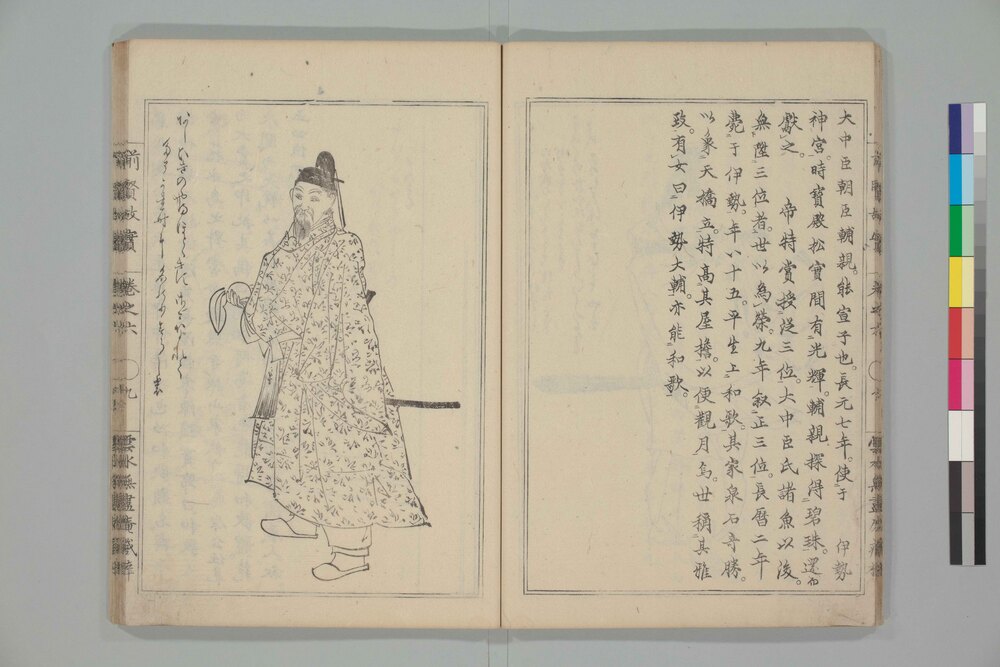 大中臣朝臣輔親。能宣子也。長元七年。使于　伊勢
神宮。時寶殿松實間有光輝。輔親探得碧珠。還而
獻之。　帝特賞授從三位。大中臣氏諸魚以後。
無陞三位者。世以爲榮。九年敘正三位。長曆二年
薨于伊勢。年八十五。平生上和歌。其家泉石奇勝。
以象天橋立。特高其屋擔。以便觀月焉。世稱其雅
致。有女曰伊勢大輔。亦能和歌。
前賢故實
卷之六
九
雲水無盡庵藏梓